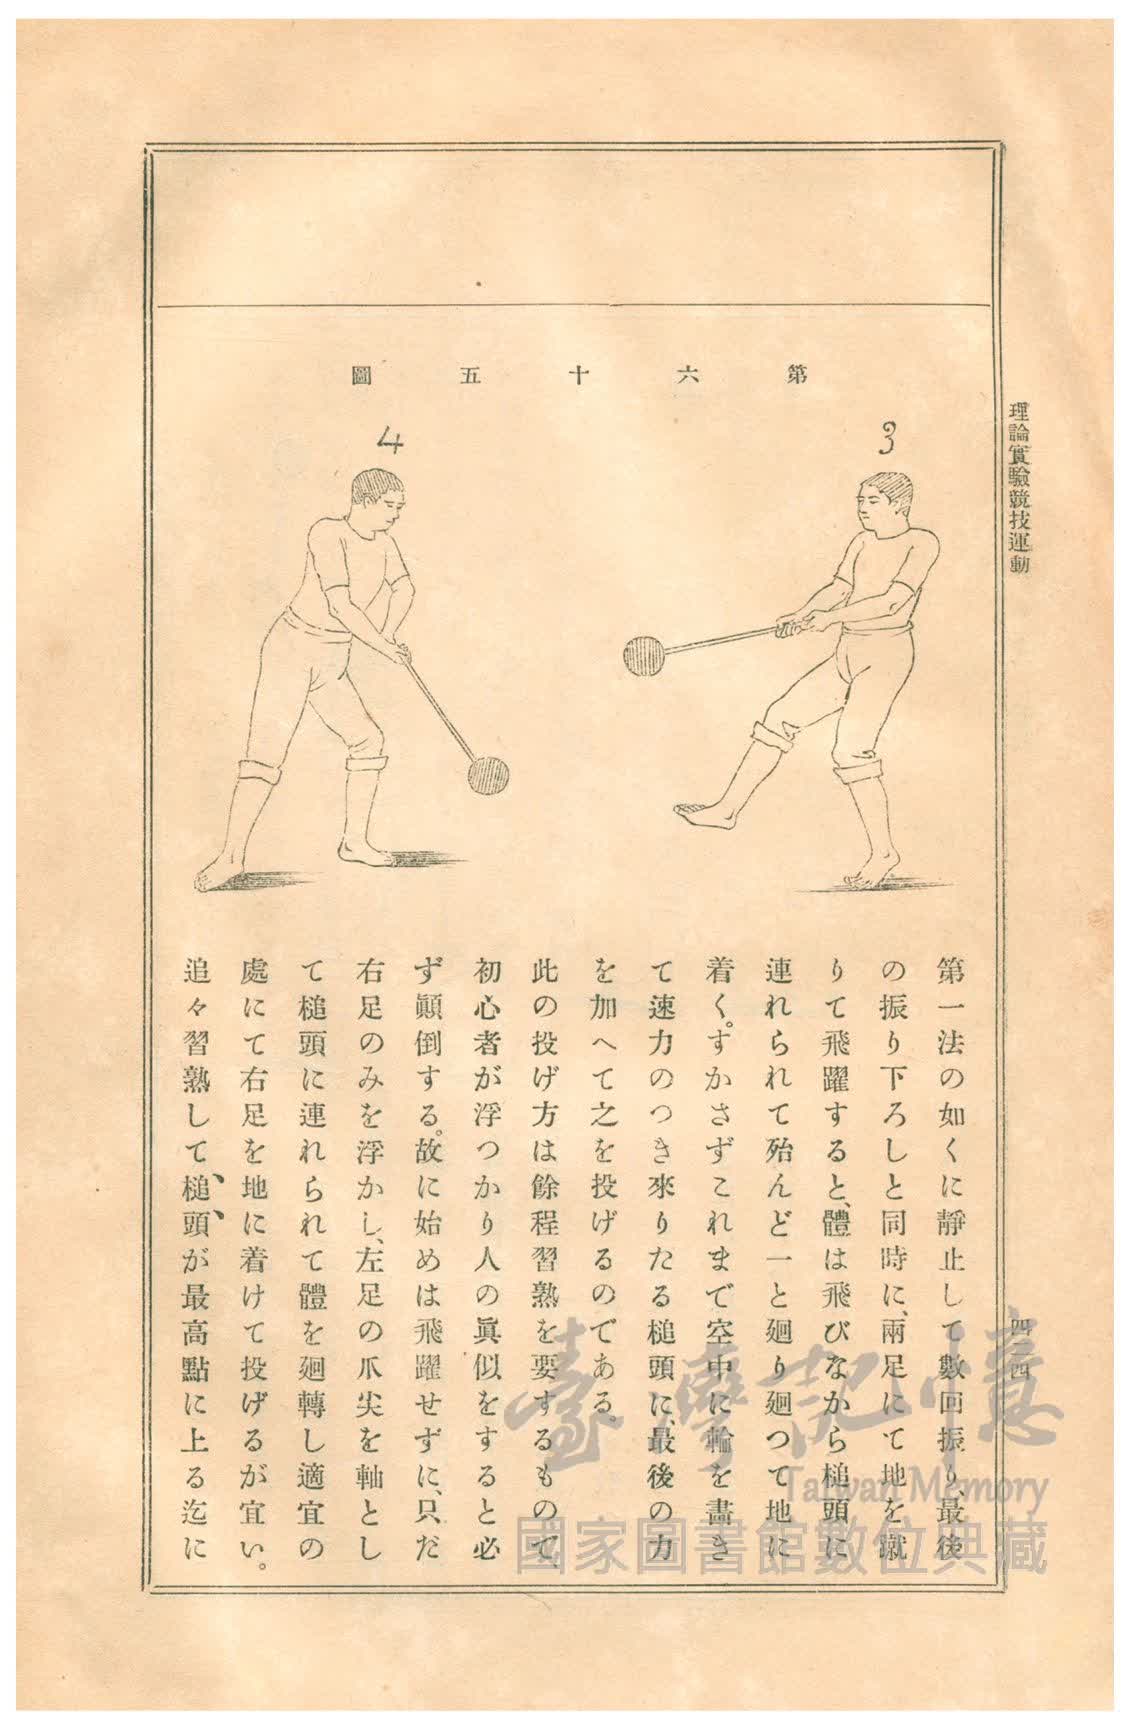 理論實驗競技運動
四二四
第六十五圖
3
4
第一法の如くに靜止して數回振り、最後
の振り下ろしと同時に、兩足にて地を蹴
りて飛躍すると、體は飛びながら槌頭に
連れられて殆んど一と廻り廻つて地に
着く。すかさずこれまで空中に輪を畵き
て速力のつき來りたる槌頭に、最後の力
を加へて之を投げるのである。
此の投げ方は餘程習熟を要するもので、
初心者が浮つかり人の眞似をすると必
ず顚倒する。故に始めは飛躍せずに、只だ
右足のみを浮かし、左足の爪尖を軸とし
て槌頭に連れられて體を廻轉し適宜の
處にて右足を地に着けて投げるが宜い。
追々習熟して、槌頭が最高點に上る迄に
臺灣記憶
Taiwan Memory
國家圖書館數位典藏